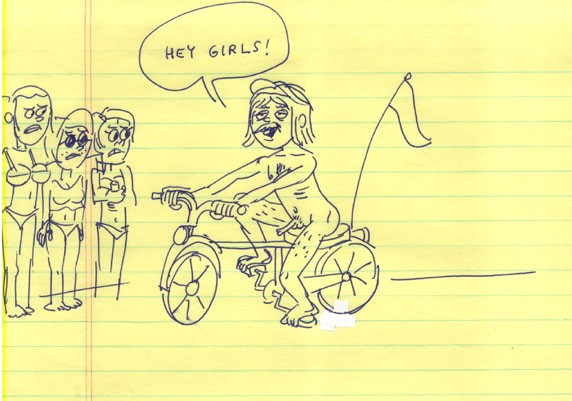 HEY GIRLS!